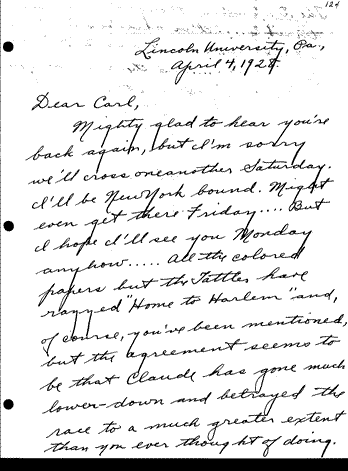 124
Lincoln University, Pa.,
April 4, 1928.
Dear Carl,
Mighty glad to hear you're
back again, but I'm sorry
we'll cross oneanother Saturday.
I'll be New York bound. Might
even get there Friday.... But
I hope I'll see you Monday
anyhow..... All the colored
papers but the Tattler have
razzed "Home to Harlem" and,
of course, you've been mentioned,
but the agreement seems to
be that Claude has gone much
lower-down and betrayed the
race to a much greater extent
than you ever thought of doing.